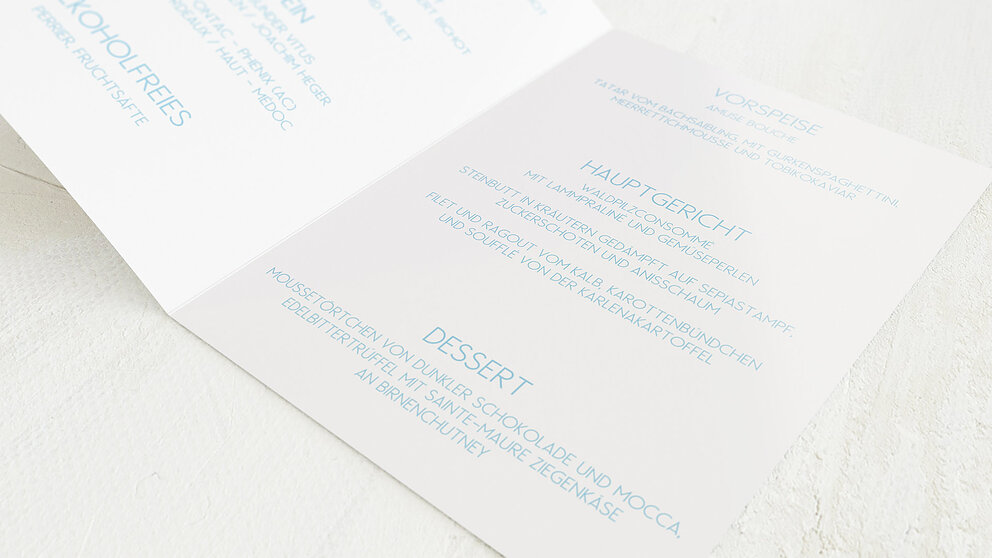 EIN
NDER VITUS
EN / JOACHIM HEGER
ONTAC - PHENIX (AC)
RDEAUX / HAUT - MEDOC
LKOHOLFREIES
PERRIER, FRUCHTSÄFTE
MILLET
BICHOT
VORSPEISE
AMUSE BOUCHE
TATAR VOM BACHSAIBLING, MIT GURKENSPAGHETTINI,
MEERRETTICHMOUSSE UND TOBIKOKAVIAR
HAUPTGERICHT
WALDPILZCONSOMME
MIT LAMMPRALINE UND GEMÜSEPERLEN
STEINBUTT IN KRÄUTERN GEDÄMPFT AUF SEPIASTAMPF,
ZUCKERSCHOTEN UND ANISSCHAUM
FILET UND RAGOUT VOM KALB, KAROTTENBÜNDCHEN
UND SOUFFLÉ VON DER KARLENAKARTOFFEL
DESSERT
MOUSSETÖRTCHEN VON DUNKLER SCHOKOLADE UND MOCCA,
EDELBITTERTRÜFFEL MIT SAINTE-MAURE ZIEGENKÄSE
AN BIRNENCHUTNEY